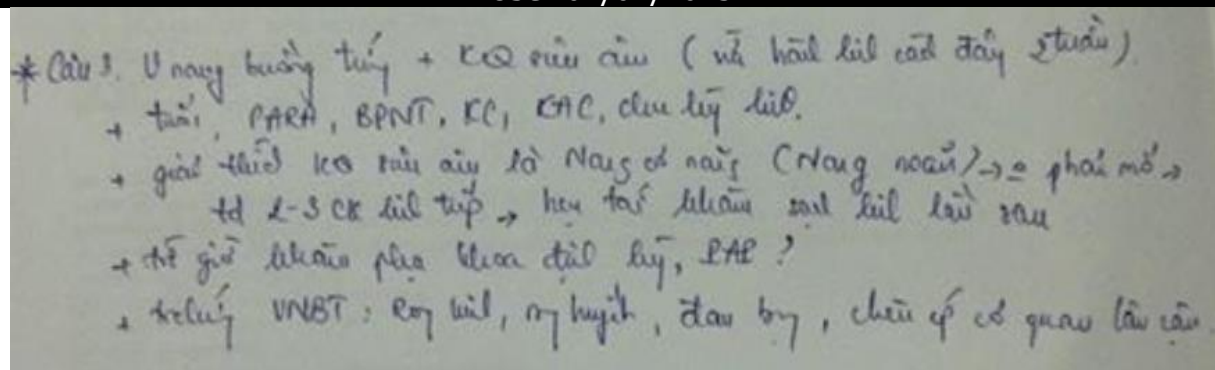 * Câu 3. U nang buồng trứng + KQ siêu âm (và hành kinh cách đây 2 tuần).
+ tuổi, PARA, BPNT, KC, chu kỳ kinh.
+ giải thích KQ siêu âm là Nang cơ năng (Nang noãn) → phải mổ →
td 2-3 CK kinh tiếp → hẹn tái khám sạch kinh lần sau
+ khám phụ khoa định kỳ, PAP?
+ tr/chứng UNBT: kinh, huyết, đau bụng, chèn ép cơ quan lân cận.